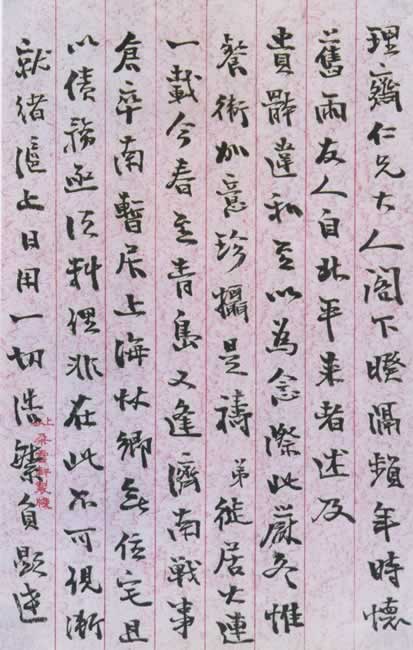 理齋仁兄大人閣下睽隔頻年時懷
舊雨友人自北平來者述及
貴體違和至以為念際此嚴冬惟
餐衛加意珍攝是禱弟徙居大連
一載今春至青島又逢濟南戰事
倉卒南暫居上海故鄉無住宅且
以債務亟須料理非在此不可現漸
就緒滬上日用一切浩繁負
朵雲軒製牋